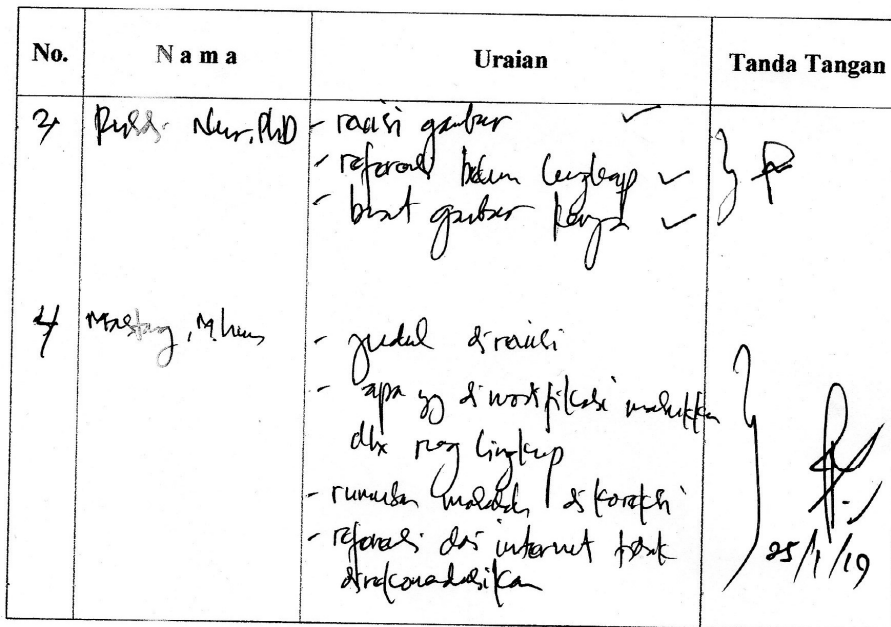 No. Nama Uraian Tanda Tangan
3 Rusdi Nur, PhD - revisi gambar
- referensi belum lengkap
- buat gambar kerja
4 Mastang, M.hum
- judul direvisi
- apa yg dimodifikasi masukkan
dlm ruang lingkup
- rumusan masalah dikoreksi
- referensi dari internet tidak
direkomendasikan
25/1/19